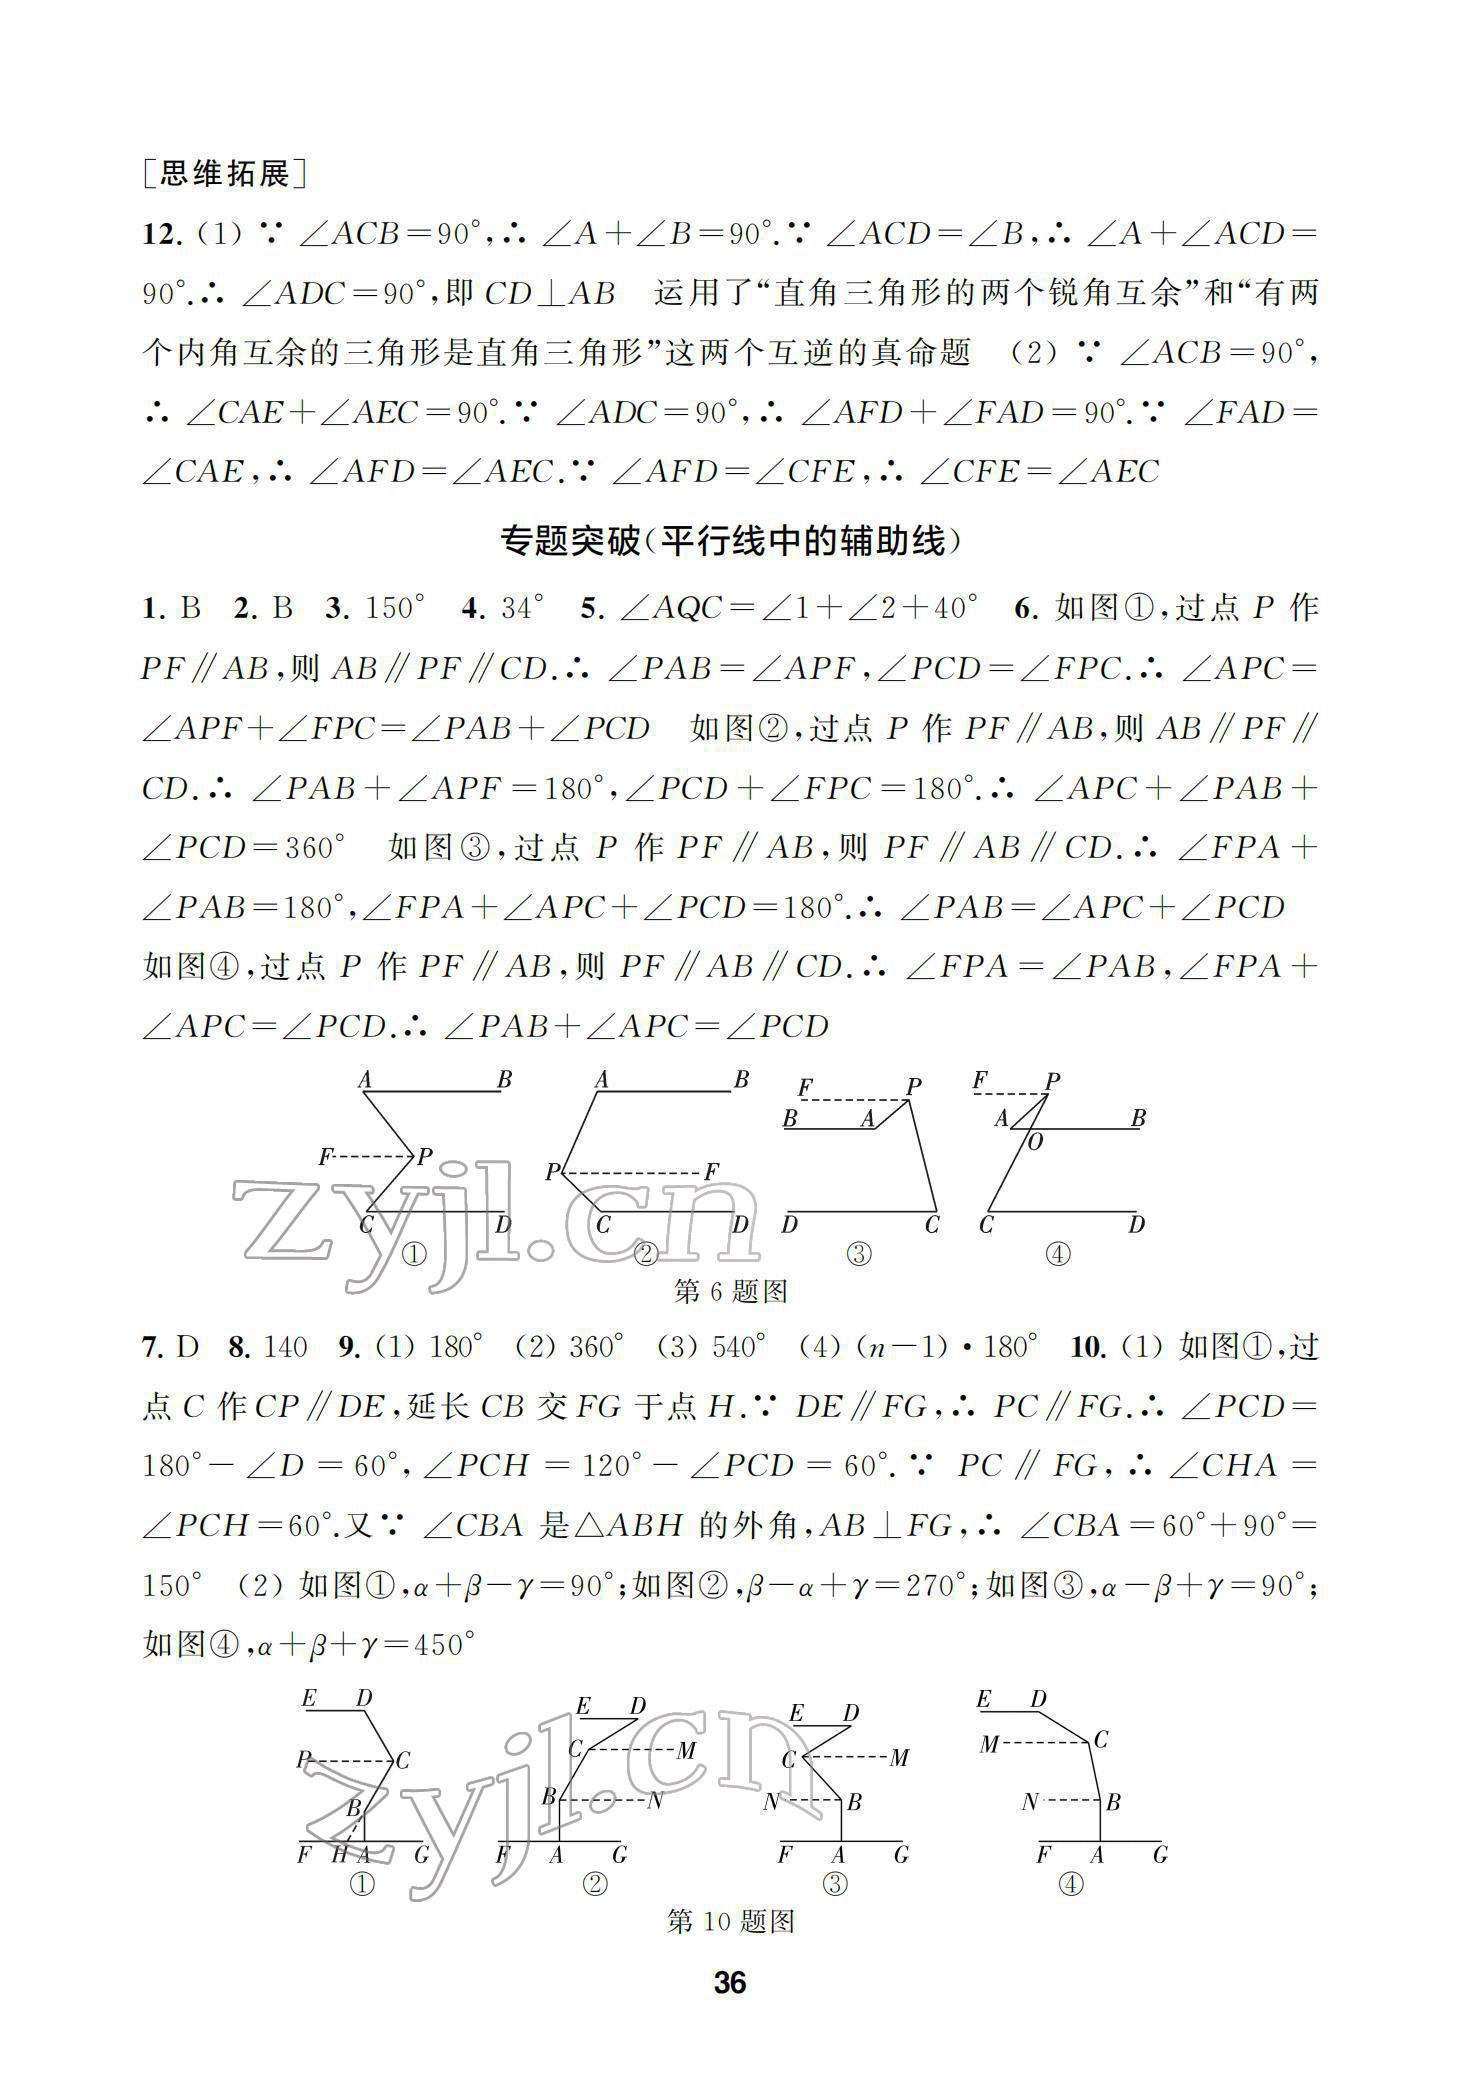 [思维拓展]
12. (1) ∵ ∠ACB=90°,∴ ∠A+∠B=90°.∵ ∠ACD=∠B,∴ ∠A+∠ACD=
90°.∴ ∠ADC=90°,即 CD⊥AB　运用了“直角三角形的两个锐角互余”和“有两
个内角互余的三角形是直角三角形”这两个互逆的真命题　(2) ∵ ∠ACB=90°,
∴ ∠CAE+∠AEC=90°.∵ ∠ADC=90°,∴ ∠AFD+∠FAD=90°.∵ ∠FAD=
∠CAE,∴ ∠AFD=∠AEC.∵ ∠AFD=∠CFE,∴ ∠CFE=∠AEC
专题突破(平行线中的辅助线)
1. B　2. B　3. 150°　4. 34°　5. ∠AQC=∠1+∠2+40°　6. 如图①,过点 P 作
PF∥AB,则 AB∥PF∥CD.∴ ∠PAB=∠APF,∠PCD=∠FPC.∴ ∠APC=
∠APF+∠FPC=∠PAB+∠PCD　如图②,过点 P 作 PF∥AB,则 AB∥PF∥
CD.∴ ∠PAB+∠APF=180°,∠PCD+∠FPC=180°.∴ ∠APC+∠PAB+
∠PCD=360°　如图③,过点 P 作 PF∥AB,则 PF∥AB∥CD.∴ ∠FPA+
∠PAB=180°,∠FPA+∠APC+∠PCD=180°.∴ ∠PAB=∠APC+∠PCD
如图④,过点 P 作 PF∥AB,则 PF∥AB∥CD.∴ ∠FPA=∠PAB,∠FPA+
∠APC=∠PCD.∴ ∠PAB+∠APC=∠PCD
A B F P C D ①
A B P F C D ②
F P B A D C ③
F P A B O C D ④
zyjl.cn
第 6 题图
7. D　8. 140　9. (1) 180°　(2) 360°　(3) 540°　(4) (n-1)·180°　10. (1) 如图①,过
点 C 作 CP∥DE,延长 CB 交 FG 于点 H.∵ DE∥FG,∴ PC∥FG.∴ ∠PCD=
180°-∠D=60°,∠PCH=120°-∠PCD=60°.∵ PC∥FG,∴ ∠CHA=
∠PCH=60°.又∵ ∠CBA 是△ABH 的外角,AB⊥FG,∴ ∠CBA=60°+90°=
150°　(2) 如图①,α+β-γ=90°;如图②,β-α+γ=270°;如图③,α-β+γ=90°;
如图④,α+β+γ=450°
E D P C B F H A G ①
E D C M B N F A G ②
E D C M N B F A G ③
E D M C N B F A G ④
zyjl.cn
第 10 题图
36